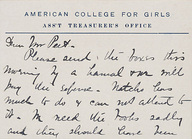 AMERICAN COLLEGE FOR GIRLS
ASST TREASURER'S OFFICE
Dear Mr Peet.
Please send the boxes this
morning by a hamal our will
pay the expense. Natcho has
much to do & can not attend to
it. We need the books sadly
and they should have been